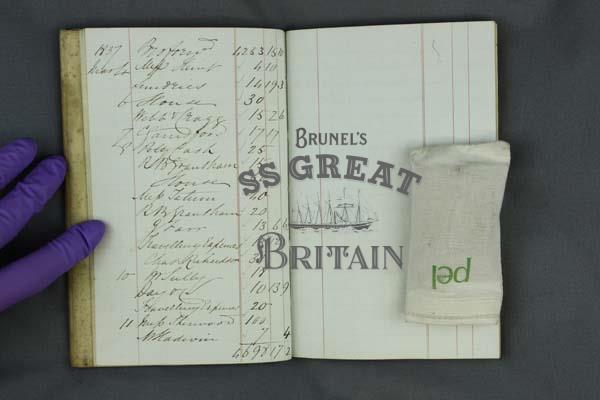 1837 Bro Forwd 4253 15 10
March 4 Miss Hunt 4 10
Sundries 14 19 3
6 House 30
Webb & Cragg 15 2 6
7 17 17
Petty Cash 25
R B Grantham
House
Miss Tatum 40
R B Grantham 20
13 6 6
Travelling Expenses
Chas Richardson 30
10 W Sully 19
10 13 9
Travelling Expenses 20
11 Miss Sherwood 100
7 4
4693 17 2
BRUNEL'S
SS GREAT
BRITAIN
pel